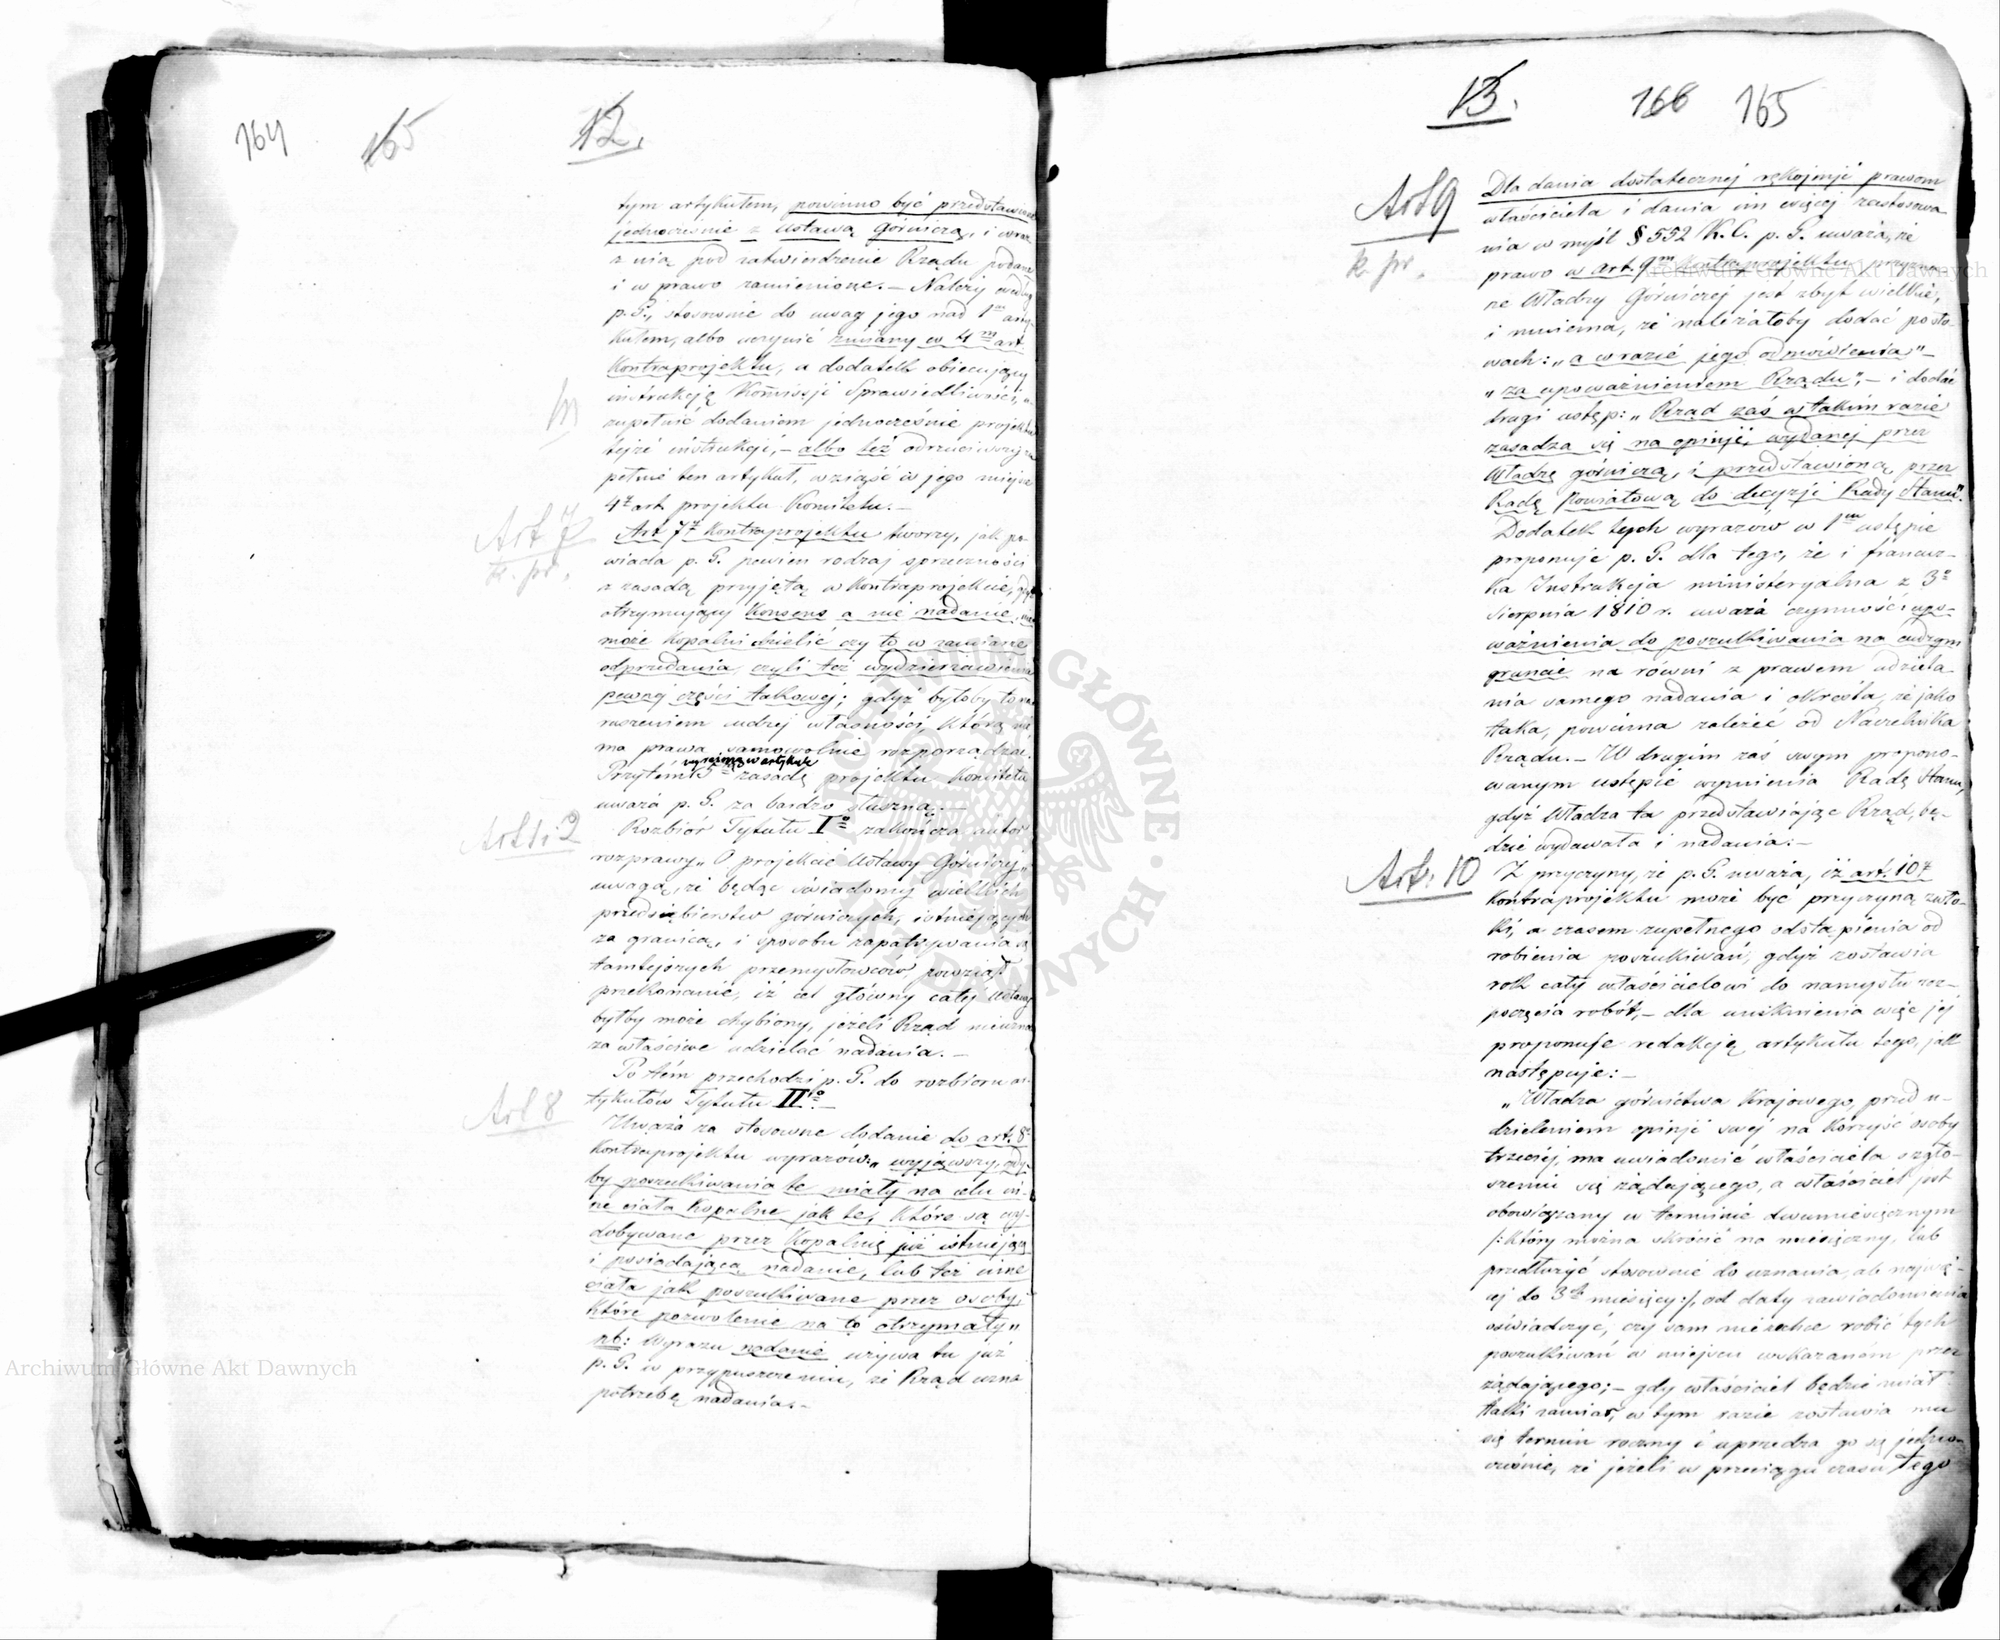 164 165 12.
tym artykułem, powinno być przedstawione
jednocześnie z Ustawą Górniczą, i wraz
z nią pod zatwierdzenie Rządu podane
i w prawo zamienione. — Należy według
p. G., stosownie do uwag jego nad 1m arty-
kułem, albo uczynić zmiany w 4m art.
Kontraprojektu, a dodatek obiecujący
instrukcję Kommissji Sprawiedliwości,
zupełnić dodaniem jednocześnie projektu
tejże instrukcji, — albo też odrzuciwszy zu-
pełnie ten artykuł, wziąść w jego miejsce
4t art projektu Komitetu. —
Art 7
k. pr.
Art 7t Kontraprojektu tworzy, jak po-
wiada p. G. pewien rodzaj sprzeczności
z zasadą przyjętą w Kontraprojekcie, gdyż
otrzymujący Konsens a nie nadanie, nie
może Kopalni dzielić czy to w zamiarze
odprzedania, czyli też wydzierżawienia
pewnej części takowej; gdyż byłoby to na-
ruszeniem cudzej własności, którą nie
ma prawa samowolnie rozporządzać.
wyrażoną w artykule
Przytém 5m zasadę projektu Komitetu
uważa p. G. za bardzo słuszną. —
Rozbiór Tytułu Io zakończa autor
rozprawy „O projekcie Ustawy Górniczej"
uwagą, że będąc świadomy wielkich
przedsiębierstw górniczych, istniejących
za granicą, i sposobu zapatrywania się
tamtejszych przemysłowców, powziął
przekonanie, iż cel główny całej Ustawy
byłby może chybiony, jeżeli Rząd nie uzna
za właściwe udzielać nadania. —
Po tém przechodzi p. G. do rozbioru ar-
tykułów Tytułu IIgo. —
Art 8
Uważa za stosowne dodanie do art. 8o
Kontraprojektu wyrazów: „wyjąwszy, gdy-
by poszukiwania te miały na celu in-
ne ciała Kopalne jak te, które są wy-
dobywane przez Kopalnię już istniejącą
i posiadającą nadanie, lub też inne
ciała jak poszukiwane przez osoby,
które pozwolenie na to otrzymały"
nb: Wyrazu nadanie używa tu już
p. G. w przypuszczeniu, że Rząd uzna
potrzebę nadania. —
13. 166 165
Art 9
k. pr.
Dla dania dostatecznéj rękojmji prawom
właściciela i dania im więcej zastosowa-
nia w myśl § 552 K. C. p. G. uważa, że
prawo w art. 9m Kontraprojektu przyzna-
ne Władzy Górniczej jest zbyt wielkie,
i mniema, że należałoby dodać po sło-
wach: „a w razie jego odmówienia" —
„za upoważnieniem Rządu", — i dodać
drugi ustęp: „Rząd zaś w takim razie
zasadza się na opinji, wydanej przez
Władzę górniczą, i przedstawioną przez
Radę Powiatową do decyzji Rady Stanu".
Dodatek tych wyrazów w 1m ustępie
proponuje p. G. dla tego, że i francuz-
ka Instrukcja ministeryalna z 3o
Sierpnia 1810 r. uważa czynność upo-
ważnienia do poszukiwania na cudzym
gruncie na równi z prawem udziela-
nia samego nadania i określa, że jako
taka, powinna zależeć od Naczelnika
Rządu. — W drugim zaś swym propono-
wanym ustępie wymienia Radę Stanu,
gdyż Władza ta przedstawiając Rząd, bę-
dzie wydawała i nadania. —
Art. 10
Z przyczyny, że p. G. uważa, iż art. 10t
Kontraprojektu może być przyczyną zwło-
ki, a czasem zupełnego odstąpienia od
robienia poszukiwań, gdyż zostawia
rok cały właścicielowi do namysłu roz-
poczęcia robót, — dla uniknienia więc jej
proponuje redakcję artykułu tego, jak
następuje: —
„Władza górnictwa Krajowego, przed u-
dzieleniem opinji swej na korzyść osoby
trzeciej, ma uwiadomić właściciela o zgło-
szeniu się żądającego, a właściciel jest
obowiązany w terminie dwumiesięcznym
/: który można skrócić na miesięczny, lub
przedłużyć stosownie do uznania, ale najwię-
cej do 3ch miesięcy :/, od daty zawiadomienia
oświadczyć, czy sam nie zechce robić tych
poszukiwań w miejscu wskazaném przez
żądającego; — gdy właściciel będzie miał
taki zamiar, w tym razie zostawia mu
się termin roczny i uprzedza go się jedno-
cześnie, że jeżeli w przeciągu czasu tego
Archiwum Główne Akt Dawnych
Archiwum Główne Akt Dawnych
ARCHIWUM GŁÓWNE AKT DAWNYCH